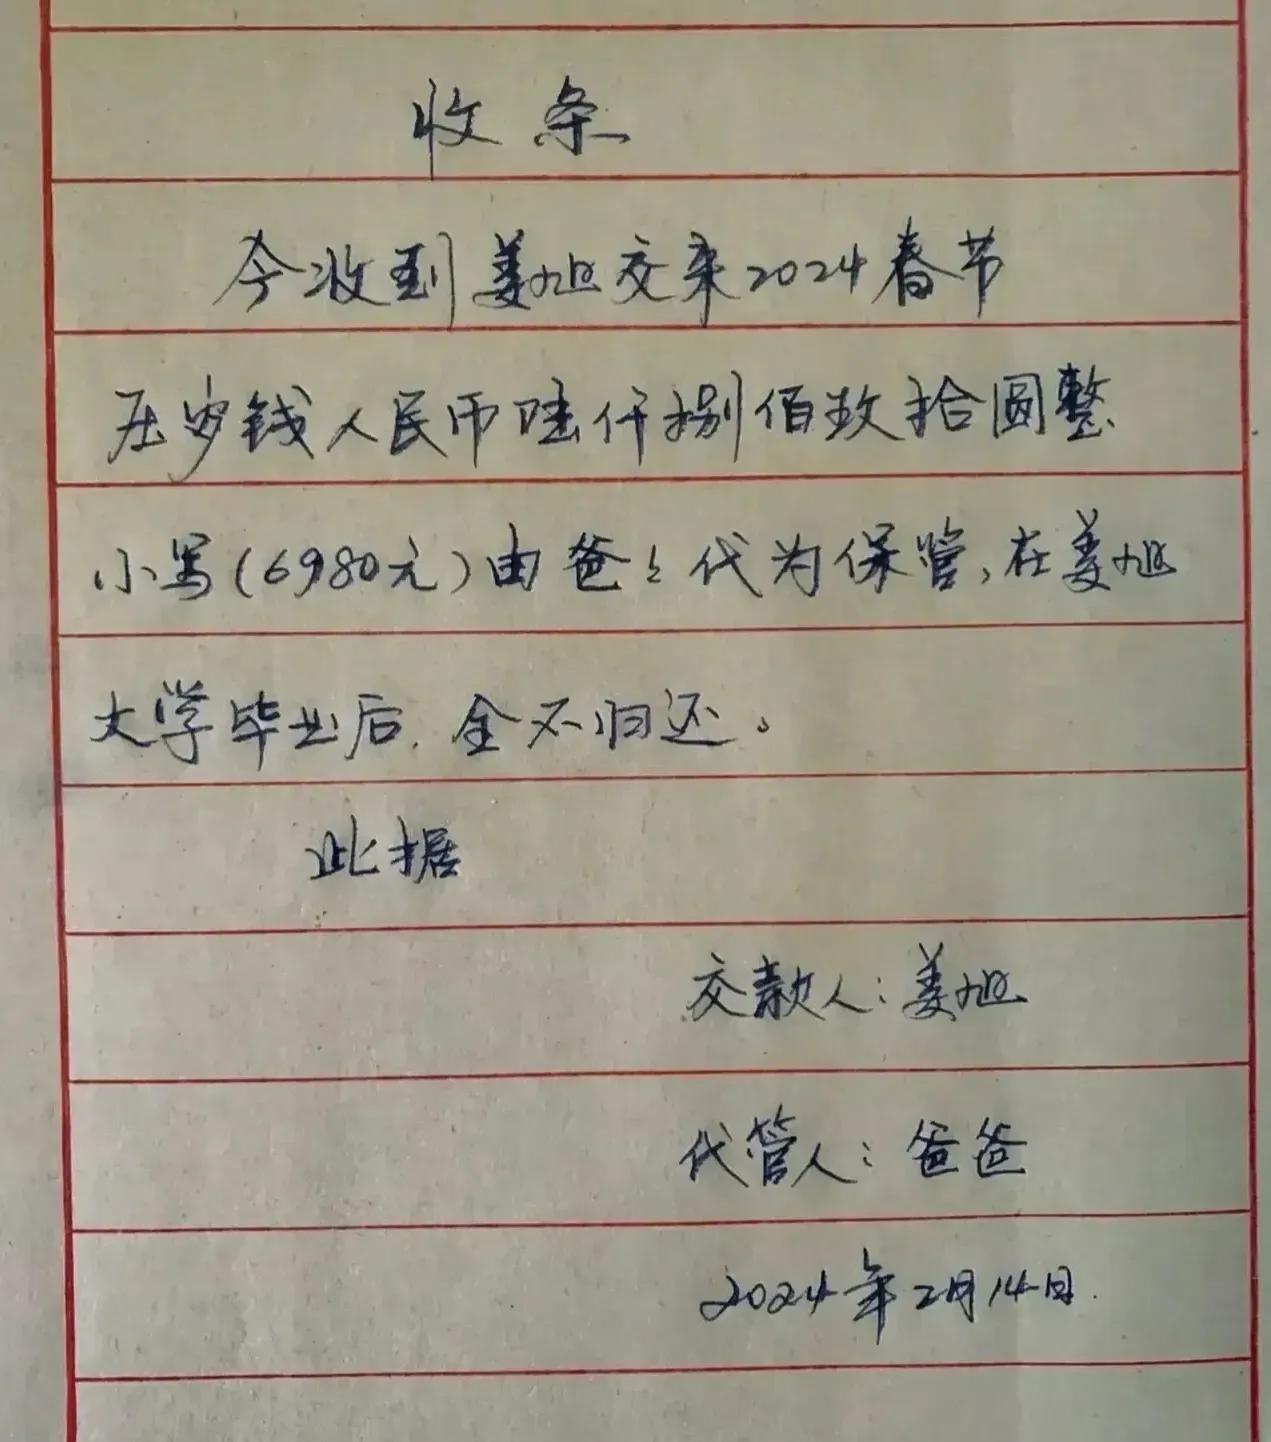 收条
今收到姜旭交来2024春节
压岁钱人民币陆仟捌佰玖拾圆整
小写(6980元)由爸々代为保管,在姜旭
大学毕业后,全不归还。
此据
交款人:姜旭
代管人:爸爸
2024年2月14日.